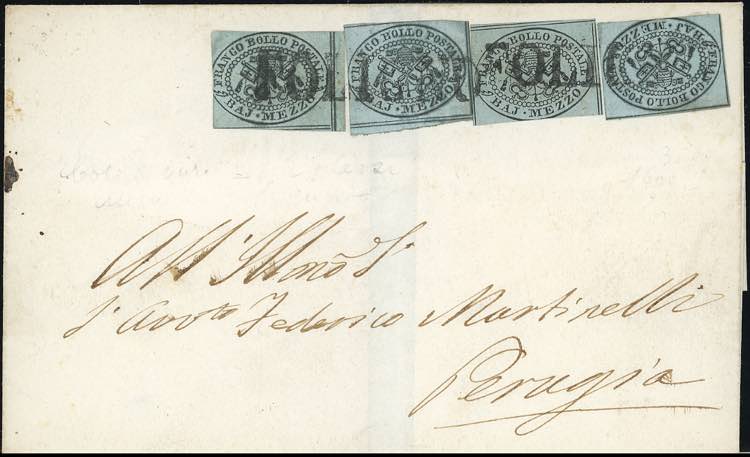 FRANCO BOLLO POSTALE
BAJ. MEZZO
FRANCO BOLLO POSTALE
BAJ. MEZZO
FRANCO BOLLO POSTALE
BAJ. MEZZO
FRANCO BOLLO POSTALE
BAJ. MEZZO
All' Illmo Sr
Sr Avvto Federico Martinelli
Perugia